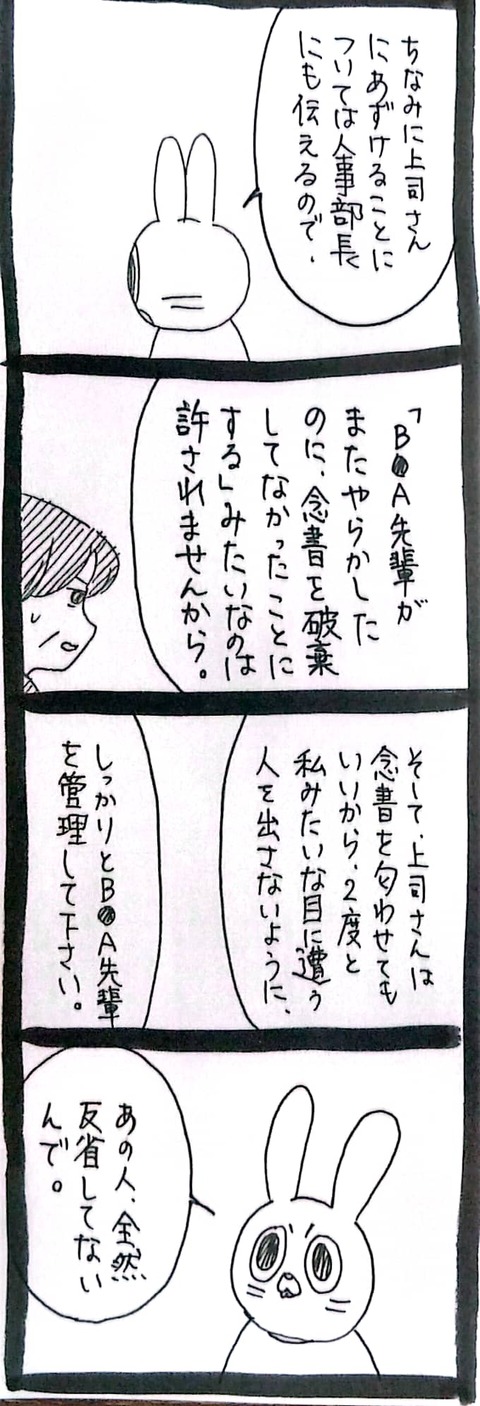 ちなみに上司さん
にあずけることに
ついては人事部長
にも伝えるので、
「B●A先輩が
またやらかした
のに、念書を破棄
してなかったことに
する」みたいなのは
許されませんから。
そして、上司さんは
念書を匂わせても
いいから、2度と
私みたいな目に遭う
人を出さないように、
しっかりとB●A先輩
を管理して下さい。
あの人、全然
反省してない
んで。